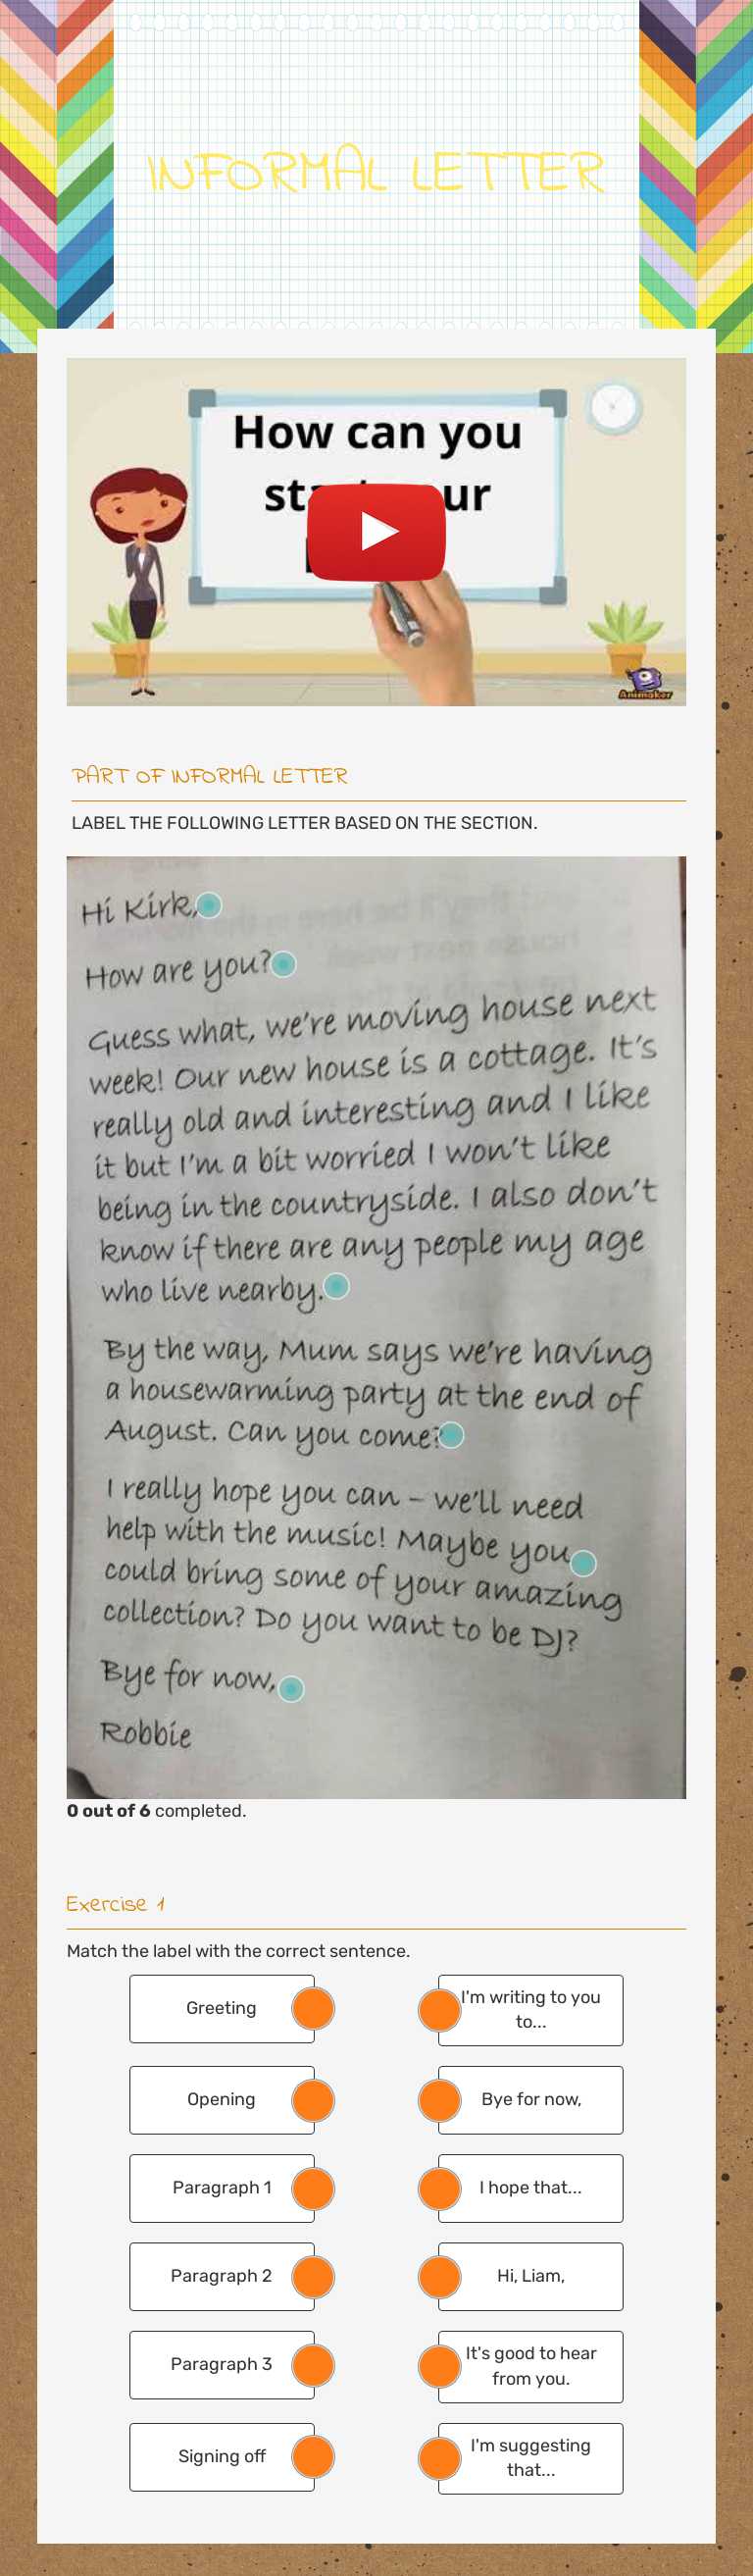 INFORMAL LETTER
How can you
PART OF INFORMAL LETTER
LABEL THE FOLLOWING LETTER BASED ON THE SECTION.
Hi Kirk,
How are you?
Guess what, we're moving house next
week! Our new house is a cottage. It's
really old and interesting and I like
it but I'm a bit worried I won't like
being in the countryside. I also don't
know if there are any people my age
who live nearby.
By the way, Mum says we're having
a housewarming party at the end of
August. Can you come?
I really hope you can – we'll need
help with the music! Maybe you
could bring some of your amazing
collection? Do you want to be DJ?
Bye for now,
Robbie
0 out of 6 completed.
Exercise 1
Match the label with the correct sentence.
Greeting
I'm writing to you
to...
Opening
Bye for now,
Paragraph 1
I hope that...
Paragraph 2
Hi, Liam,
Paragraph 3
It's good to hear
from you.
Signing off
I'm suggesting
that...
Animaker